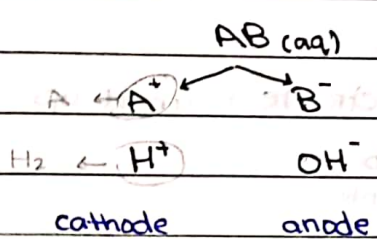 AB (aq)
A ← A⁺ B⁻
H₂ ← H⁺ OH⁻
cathode anode